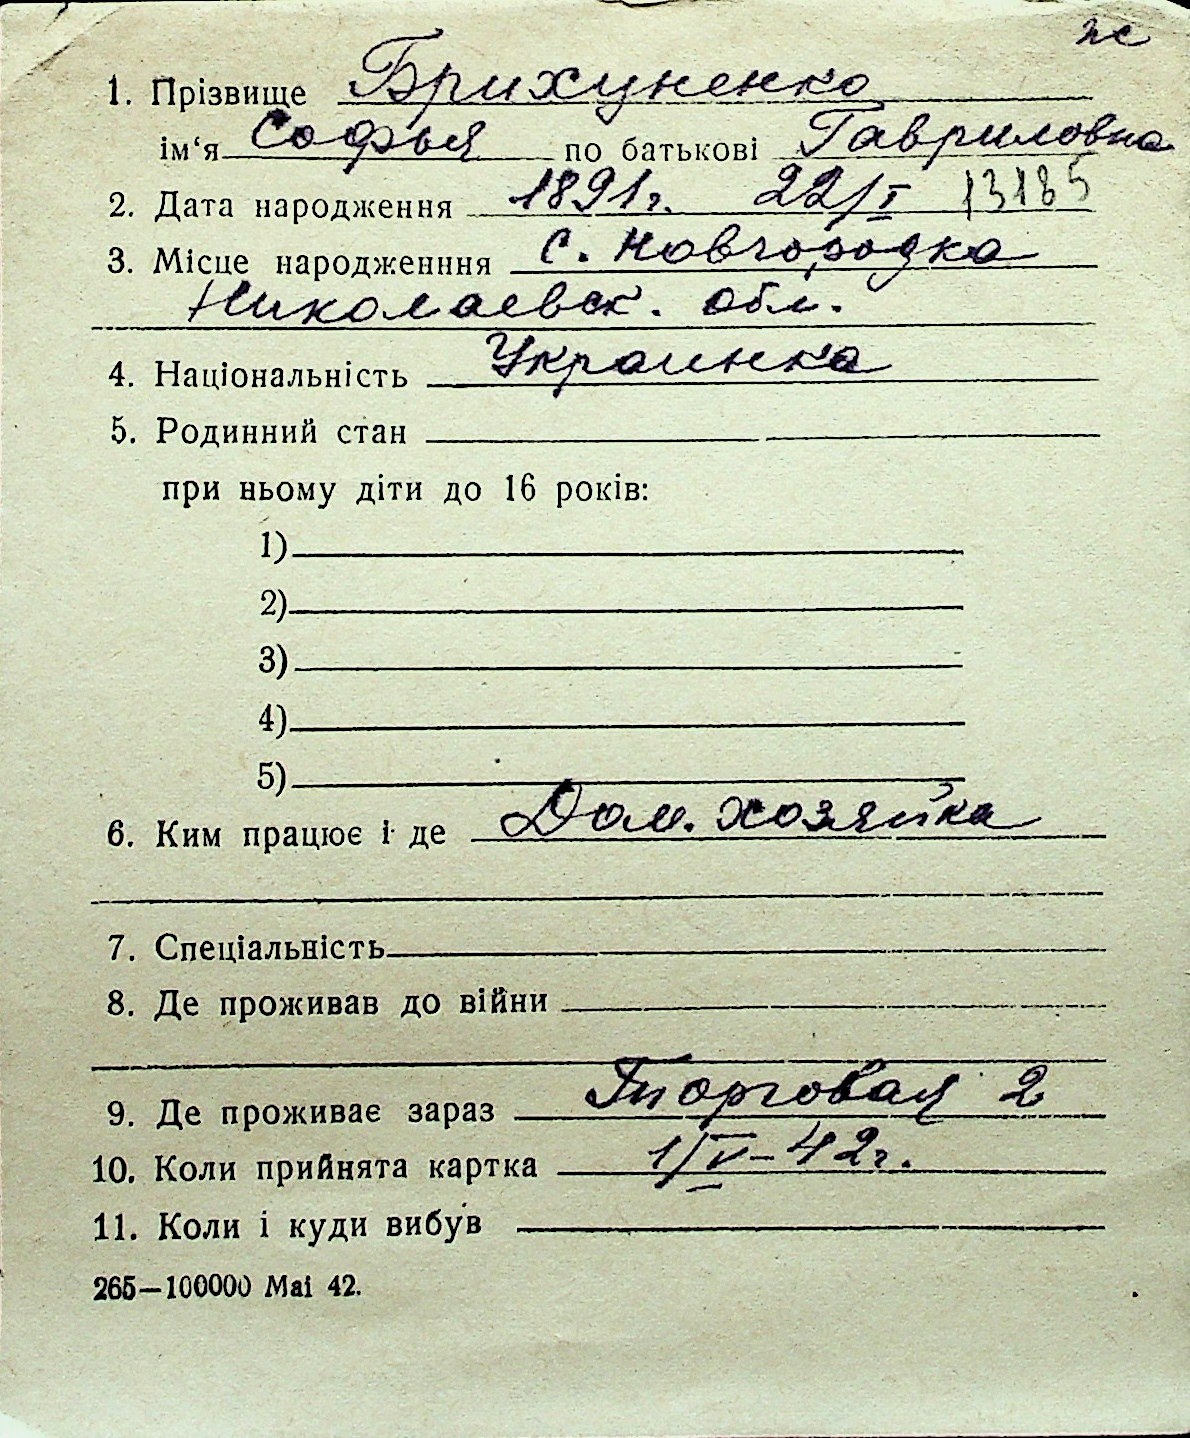 жс
1. Прізвище Брихуненко
ім‘я Софья по батькові Гавриловна
2. Дата народження 1891г. 22/I 13185
3. Місце народженння с. Новгородка
Николаевск. обл.
4. Національність Украинка
5. Родинний стан
при ньому діти до 16 років:
1)
2)
3)
4)
5)
6. Ким працює і де Дом. хозяйка
7. Спеціальність
8. Де проживав до війни
9. Де проживає зараз Торговая 2
10. Коли прийнята картка 1/V-42г.
11. Коли і куди вибув
265—100000 Mai 42.